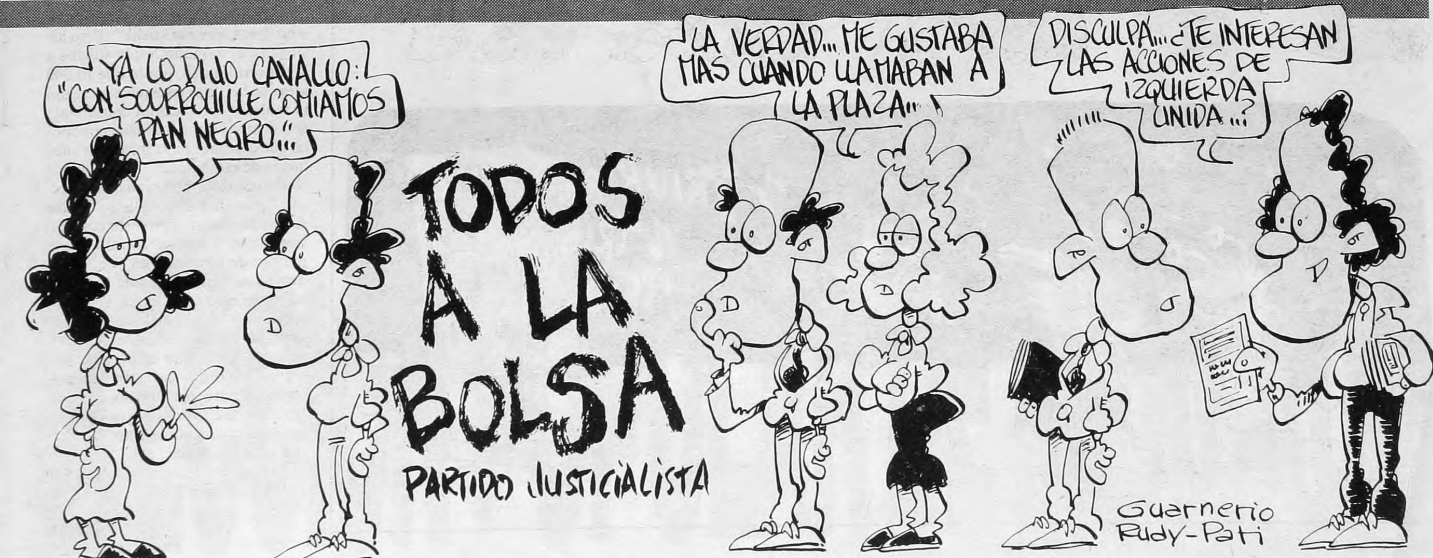 YA LO DIJO CAVALLO:
"CON SOURROUILLE COMIAMOS
PAN NEGRO...
TODOS
A LA
BOLSA
PARTIDO JUSTICIALISTA
LA VERDAD... ME GUSTABA
MAS CUANDO LLAMABAN A
LA PLAZA...
DISCULPÁ... ¿TE INTERESAN
LAS ACCIONES DE
IZQUIERDA
UNIDA...?
Guarnerio
Rudy-Pati